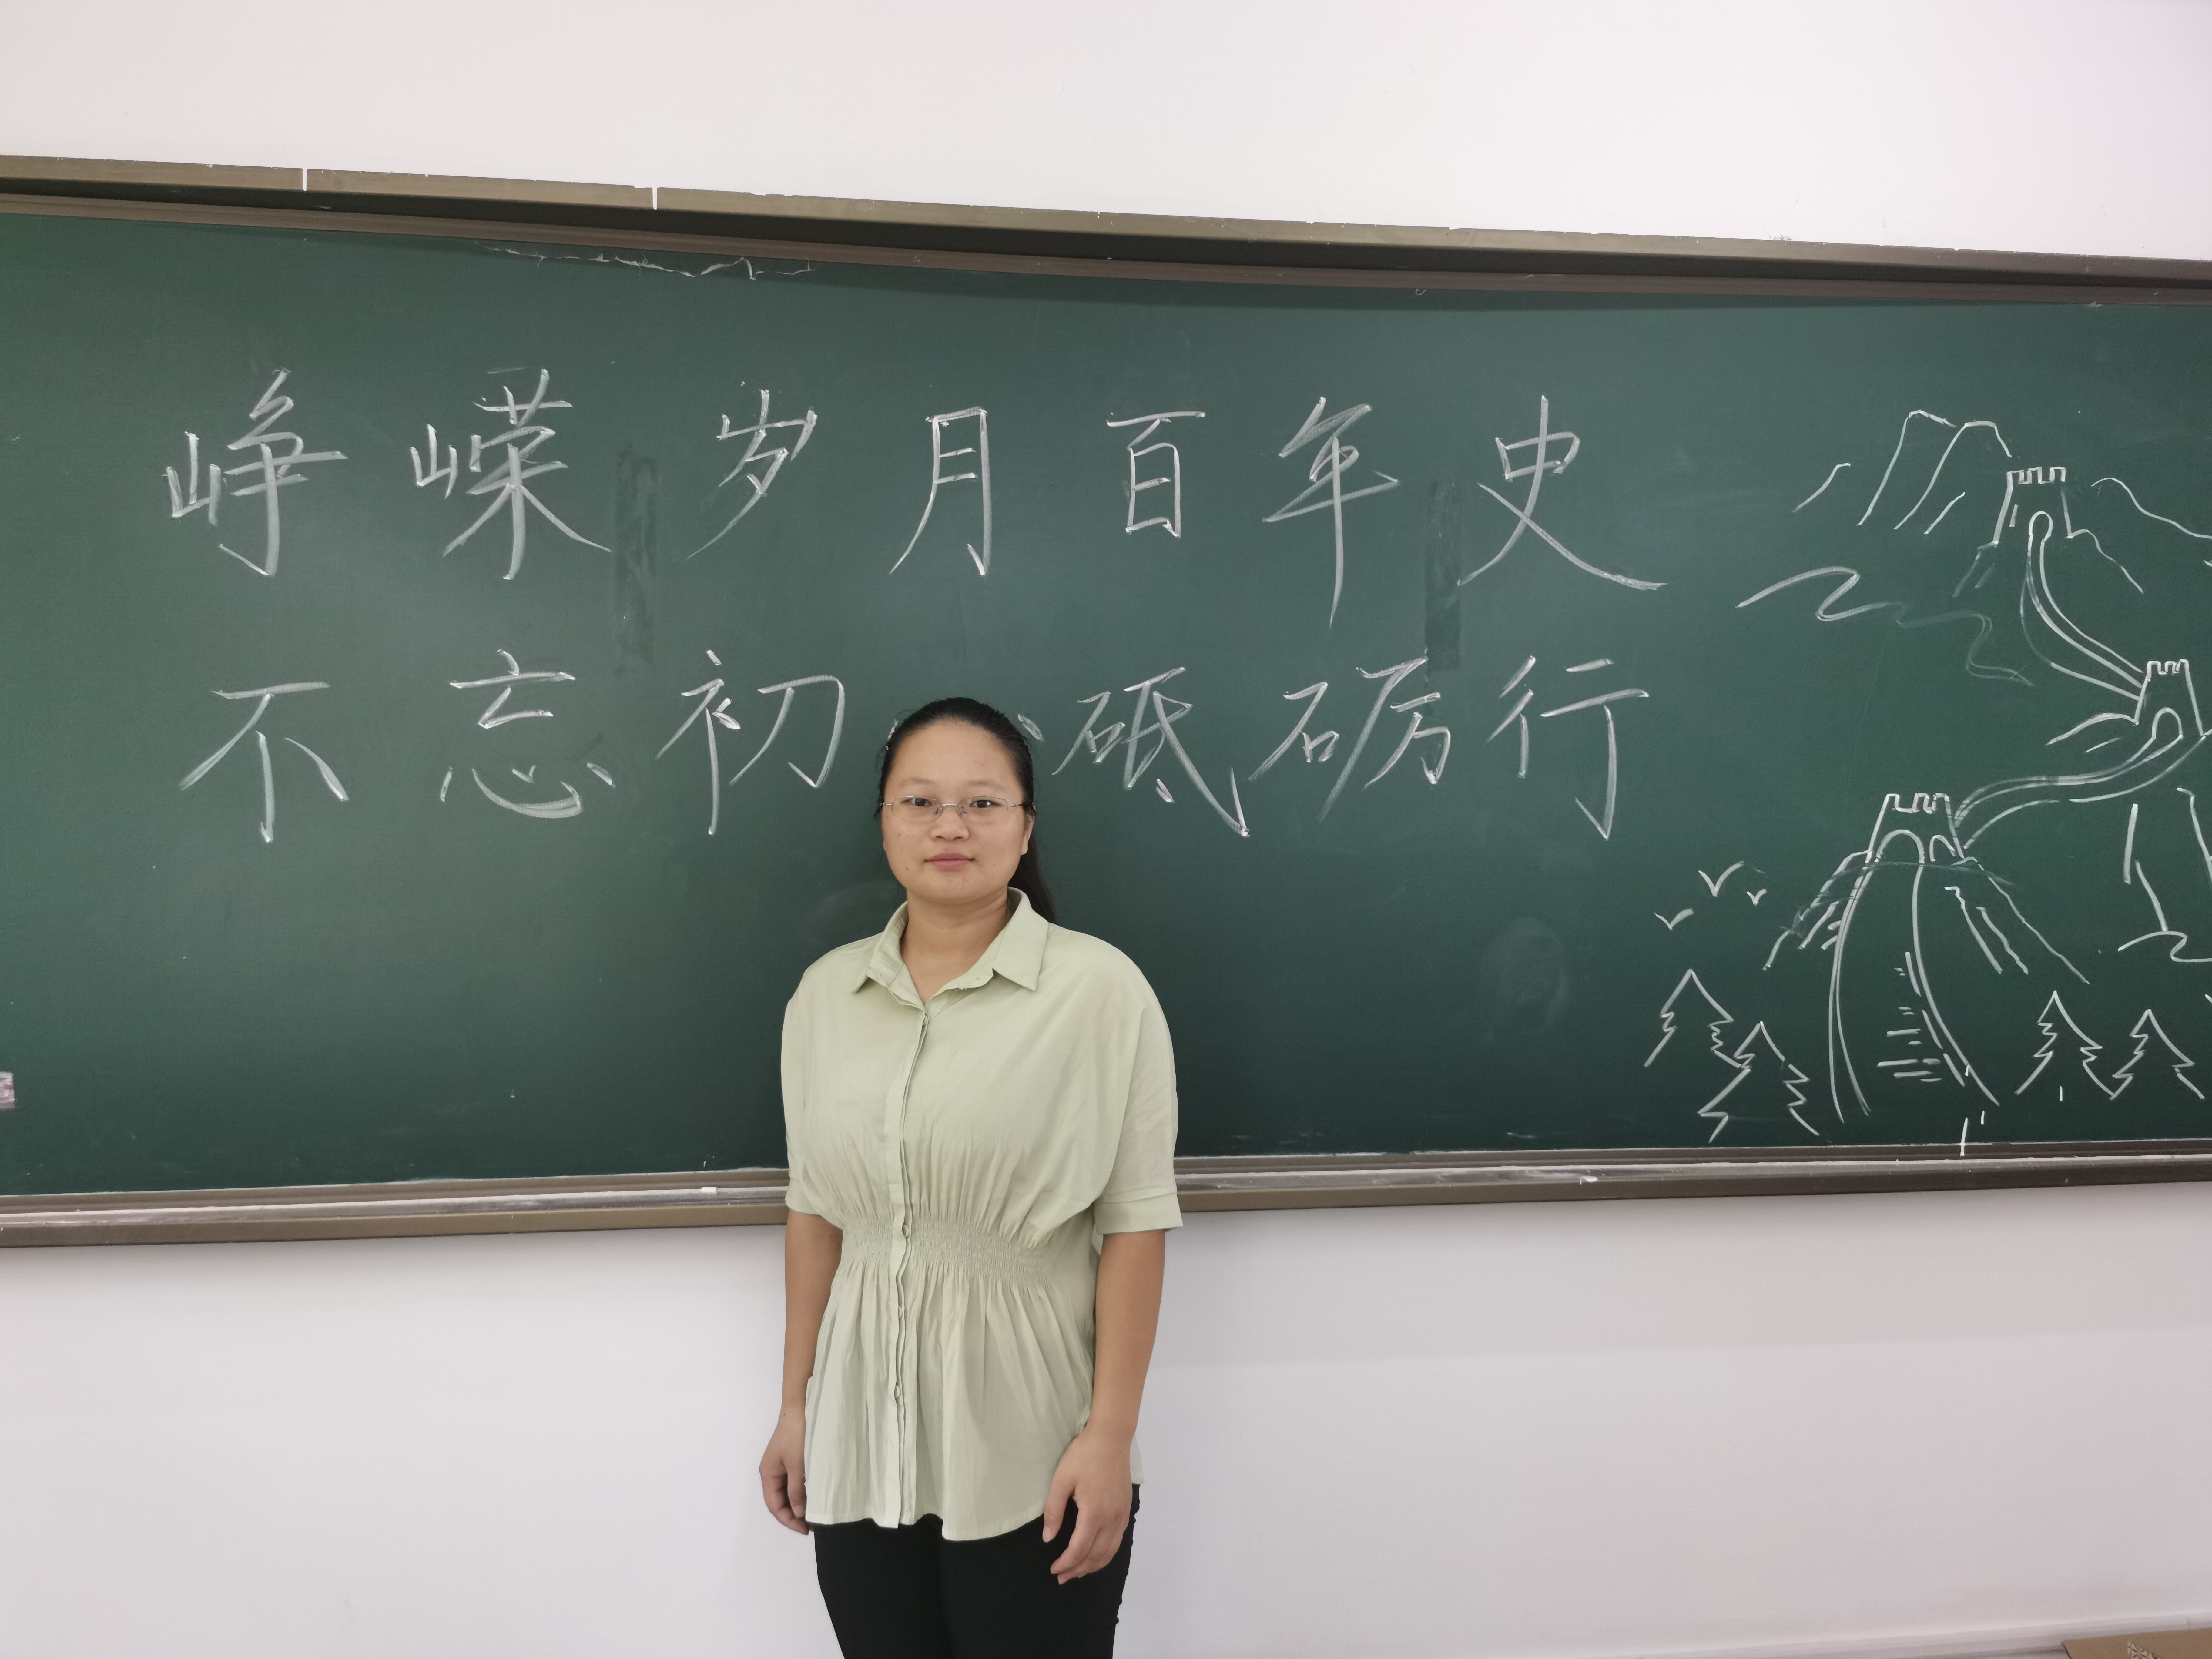 峥嵘岁月百年史
不忘初 砥砺行